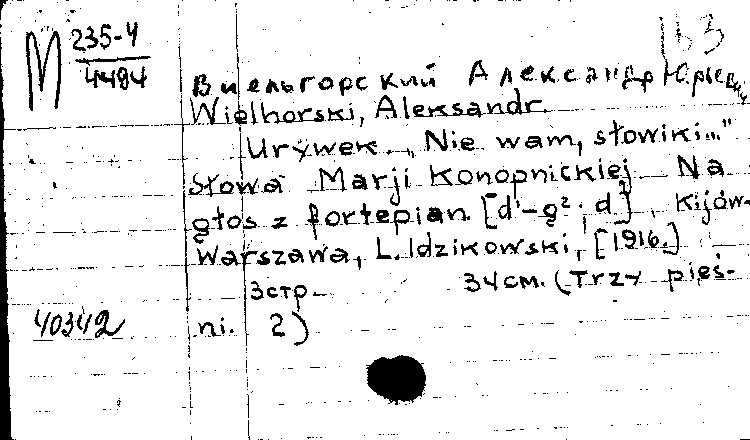 М 235-4
4484
163
Виельгорский Александр Юрьевич
Wielhorski, Aleksandr.
Urywek. „Nie wam, słowiki..."
Słowa Marji Konopnickiej. Na
głos z fortepian. [d¹-g²; d]. Kijów-
Warszawa, L. Idzikowski, [1916.]
3стр. 34см. (Trzy pieś-
40342 ni. 2)